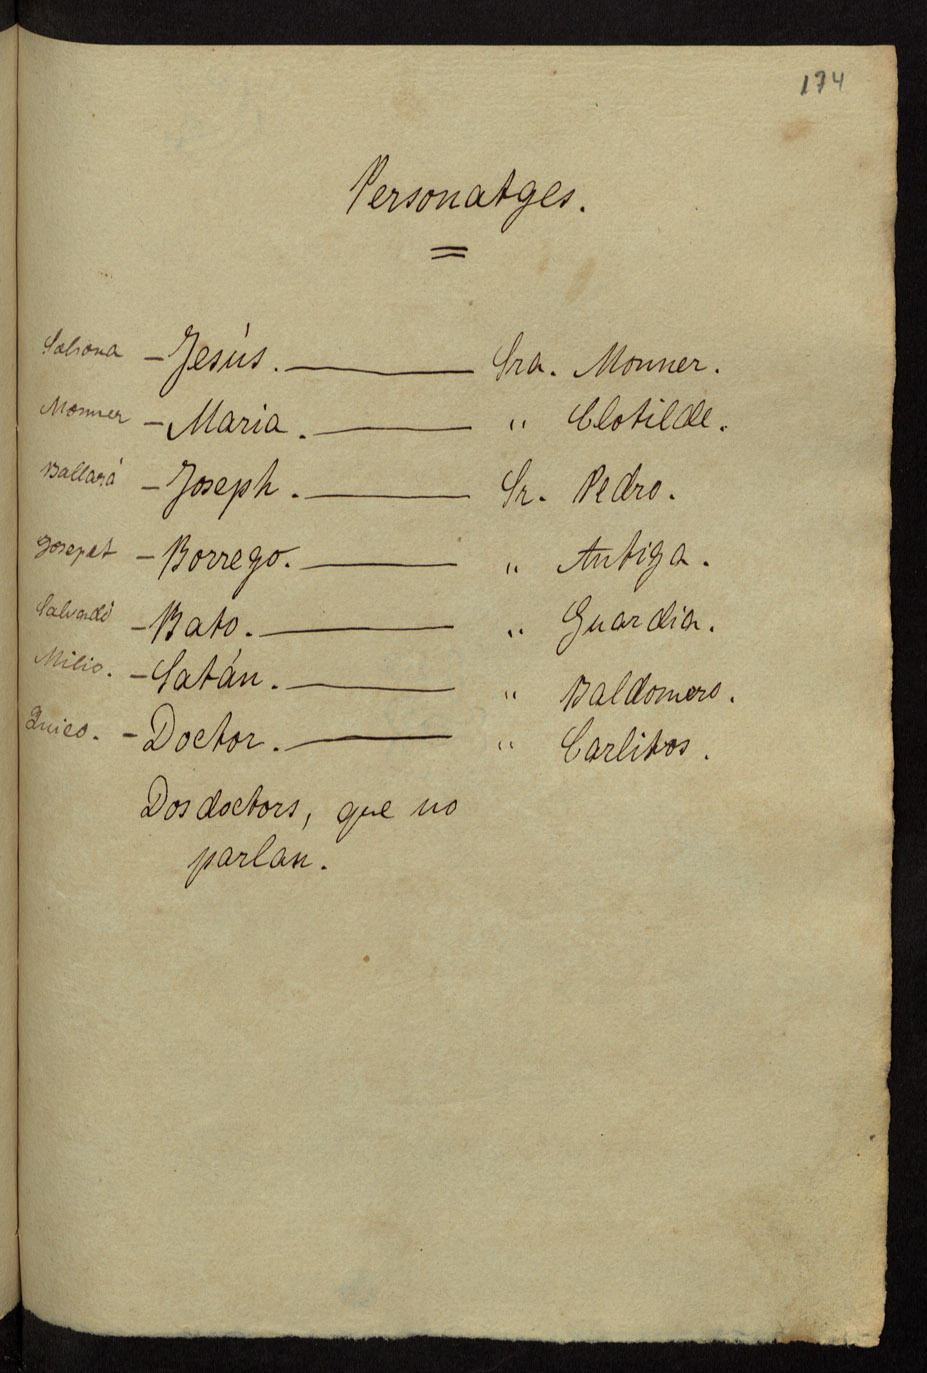 174
Personatges.
Solsona - Jesús. Sra. Monner.
Monner - Maria. " Clotilde.
Ballará - Joseph. Sr. Pedro.
Josepet - Borrego. " Antiga.
Salvadó - Bato. " Guardia.
Milio. - Satán. " Baldomero.
Quico. - Doctor. " Carlitos.
Dos doctors, que no
parlan.